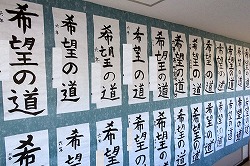 希望の道
希望の道
希望の道
希望の道
希望の道
希望の道
希望の道
希望の道
希望の道
希望
希望
希望の
希望の道
希望の道
希望の道
希望の道
希望の道
希望の道